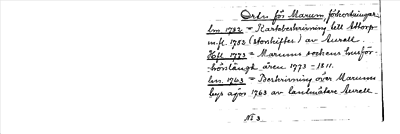 Orter för Marum förkortningar
lm. 1782 = Kartebeskrivning till Attorp
m.fl. 1782 (storskifte) av Aurell.
Hfl 1773 = Marums sockens husför-
hörslängd åren 1773 - 1811.
lm. 1763 = Beskrivning över Marums
bys ägor 1763 av lantmätare Aurell.
No 3